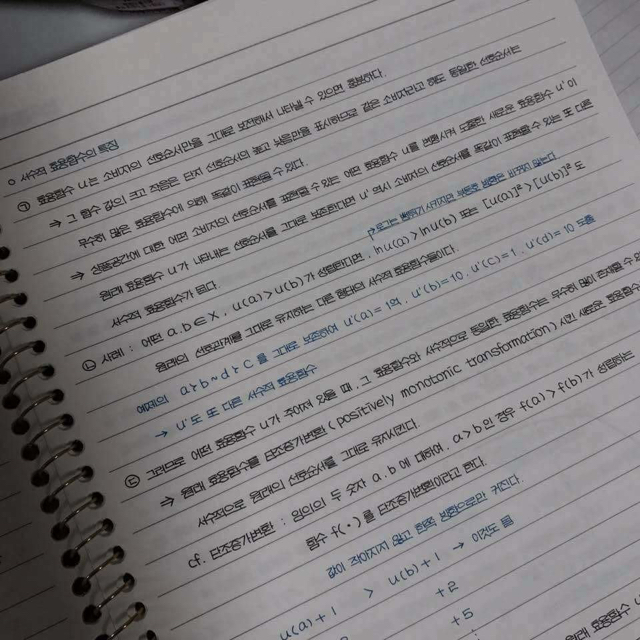 o 서수적 효용함수의 특징
㉠ 효용함수 u는 소비자의 선호순서만을 그대로 보존해서 나타낼 수 있으면 충분하다.
⇒ 그 함수 값의 크고 작음은 단지 선호순서의 높고 낮음만을 표시하므로 같은 소비자라고 해도 동일한 선호순서는
무수히 많은 효용함수에 의해 똑같이 표현될 수 있다.
⇒ 상품공간에 대한 어떤 소비자의 선호순서를 표현할 수 있는 어떤 효용함수 u를 변형시켜 도출된 새로운 효용함수 u'이
원래 효용함수 u가 나타내는 선호순서를 그대로 보존한다면 u' 역시 소비자의 선호순서를 똑같이 표현할 수 있는 또 다른
서수적 효용함수가 된다.
㉡ 사례 : 어떤 a.b ∈ X, u(a) > u(b)가 성립한다면, lnu(a) > lnu(b) 또는 [u(a)]³ > [u(b)]³ 도
원래의 선호관계를 그대로 유지하는 다른 형태의 서수적 효용함수들이다.
예제의 a≻b~d≻c 를 그대로 보존하여 u'(a) = 19, u'(b) = 10, u'(c) = 1, u'(d) = 10 도출
→ u'도 또 다른 서수적 효용함수
㉢ 그러므로 어떤 효용함수 u가 주어져 있을 때, 그 효용함수와 서수적으로 동일한 효용함수는 무수히 많이 존재할 수
⇒ 원래 효용함수를 단조증가변환(positively monotonic transformation) 시킨 새로운 효용함수
서수적으로 원래의 선호순서를 그대로 유지시킨다.
cf. 단조증가변환 : 임의의 두 숫자 a.b 에 대하여, a > b 인 경우 f(a) > f(b)가 성립하는
함수 f(•)를 단조증가변환이라고 한다.
값이 작아지지 않고 한쪽 방향으로만 커진다.
u(a) + 1 > u(b) + 1 → 이것도 됨
+2
+5